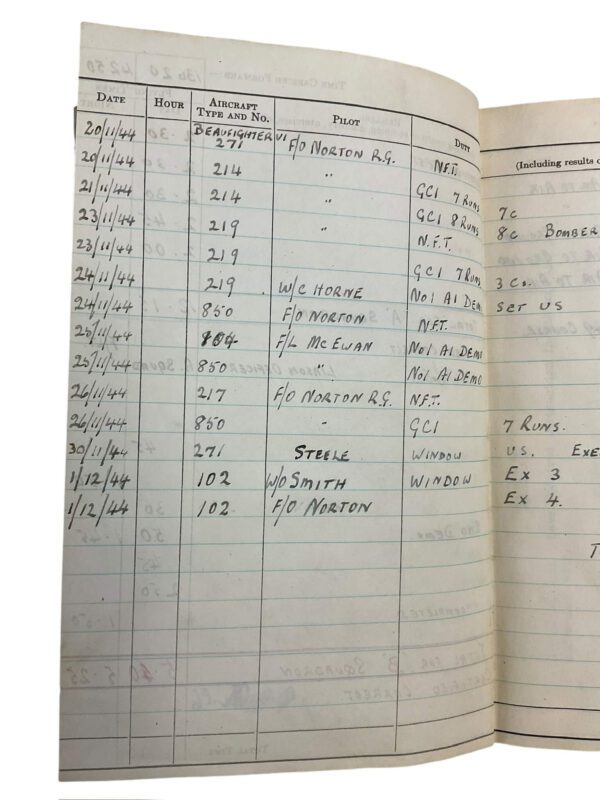 DATE HOUR AIRCRAFT TYPE AND NO. PILOT DUTY
(Including results o
20/11/44 BEAUFIGHTER VI 271 F/O NORTON R.G. N.F.T.
20/11/44 214 " GCI 7 RUNS 7c
21/11/44 214 " GCI 8 RUNS 8c BOMBER
23/11/44 219 N.F.T.
23/11/44 219 GCI 7 RUNS 3 Cs.
24/11/44 219 W/C HORNE No1 AI DEMO SET US
24/11/44 850 F/O NORTON N.F.T.
25/11/44 F/L MCEWAN No1 AI DEMO
25/11/44 850 " No1 AI DEMO
26/11/44 217 F/O NORTON R.G. N.F.T.
26/11/44 850 " GCI 7 RUNS.
30/11/44 271 STEELE WINDOW US. EXE
1/12/44 102 W/O SMITH WINDOW EX 3
1/12/44 102 F/O NORTON EX 4.
T